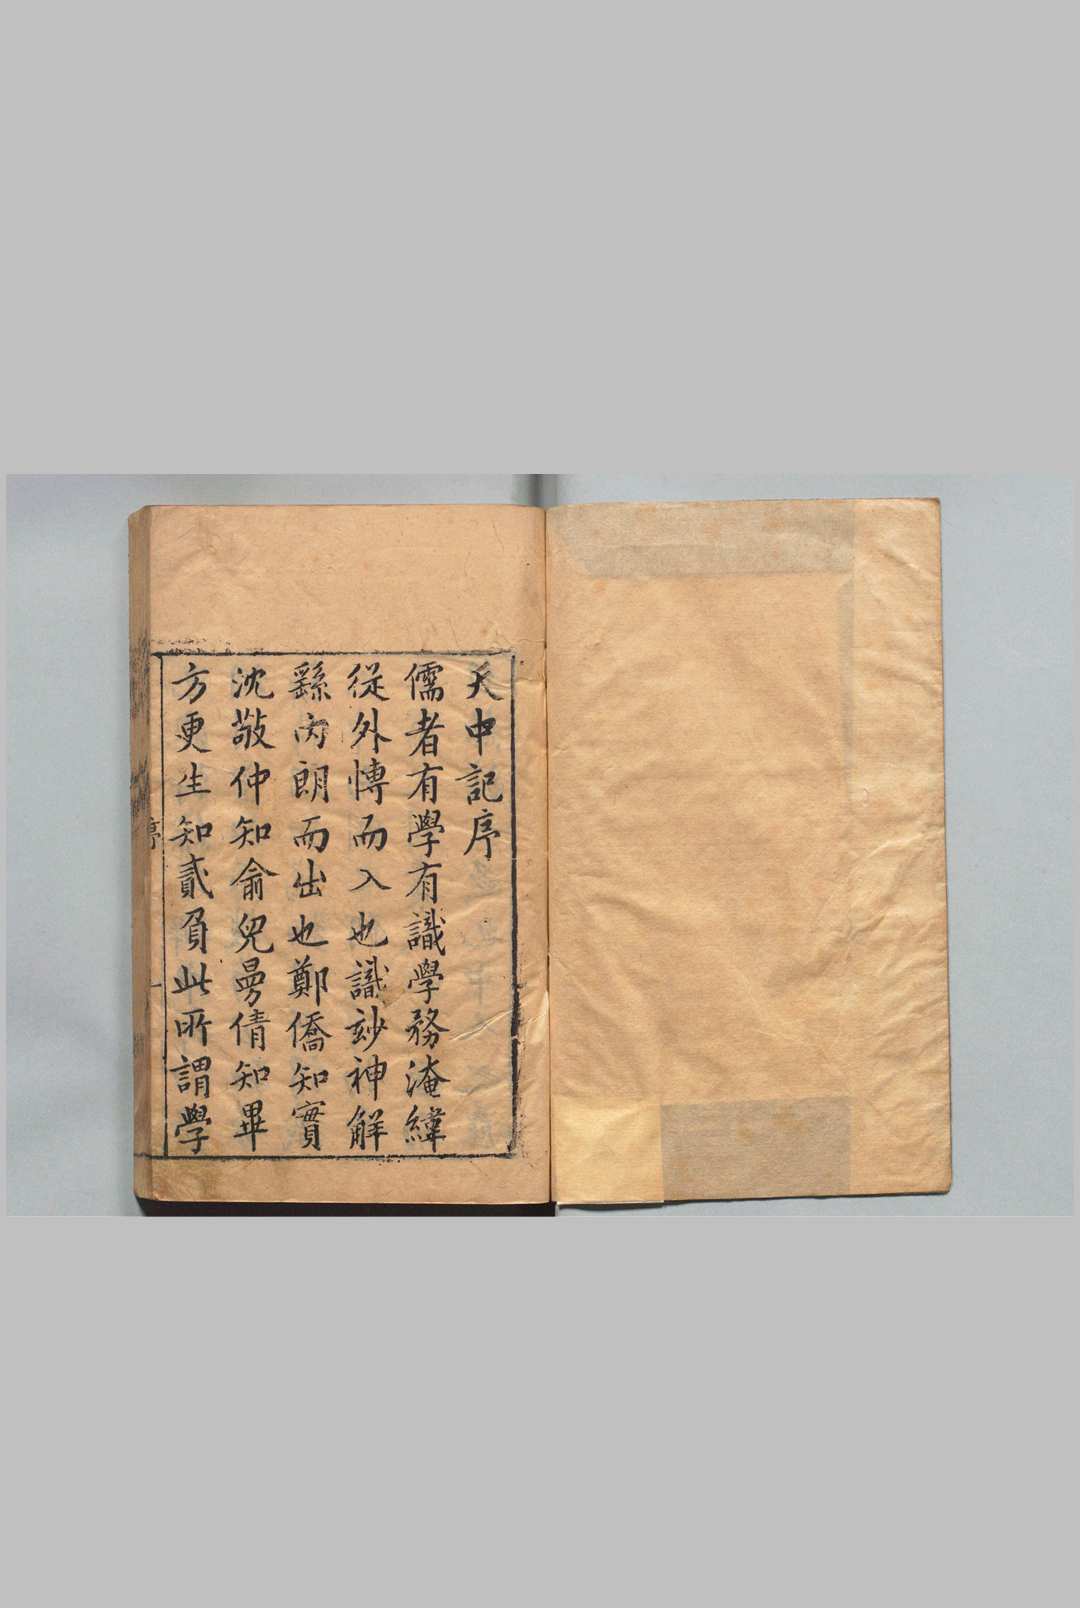 天中記序
儒者有學有識學務淹緯
從外慱而入也識玅神解
繇內朗而出也鄭僑知實
沈敬仲知俞兒曼倩知畢
方更生知貳負此所謂學
序
一